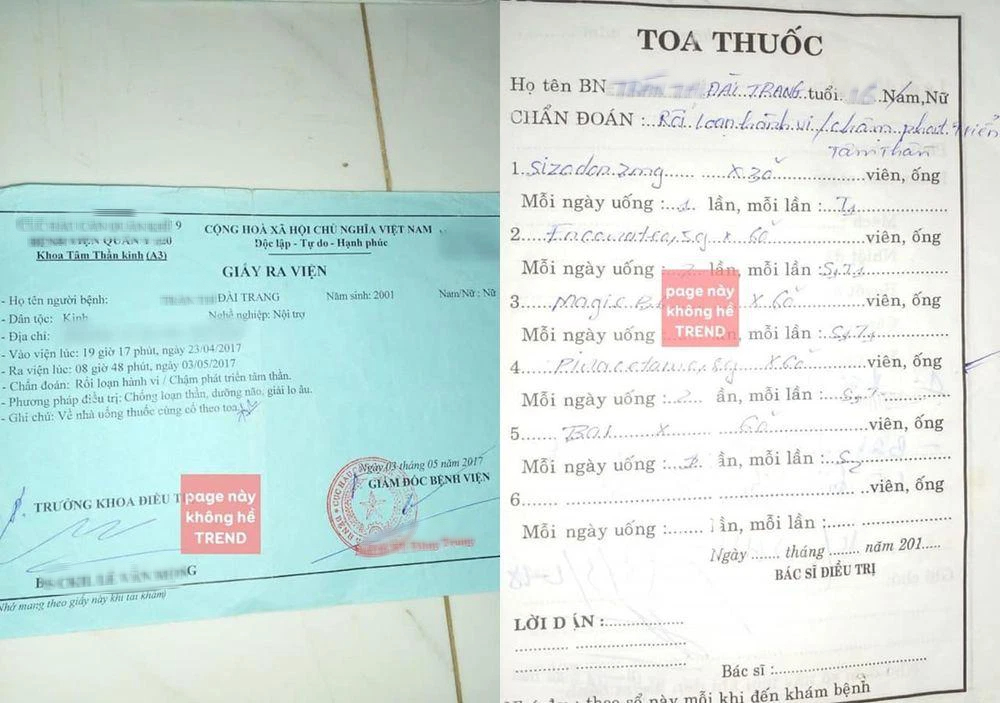 9
CỘNG HOÀ XÃ HỘI CHỦ NGHĨA VIỆT NAM
BỆNH VIỆN QUÂN Y 120
Độc lập - Tự do - Hạnh phúc
Khoa Tâm Thần kinh (A3)
GIẤY RA VIỆN
- Họ tên người bệnh: ĐÀI TRANG Năm sinh: 2001 Nam/Nữ : Nữ
- Dân tộc: Kinh Nghề nghiệp: Nội trợ
- Địa chỉ:
- Vào viện lúc: 19 giờ 17 phút, ngày 23/04/2017
- Ra viện lúc: 08 giờ 48 phút, ngày 03/05/2017
- Chẩn đoán: Rối loạn hành vi / Chậm phát triển tâm thần.
- Phương pháp điều trị: Chống loạn thần, dưỡng não, giải lo âu.
- Ghi chú: Về nhà uống thuốc củng cố theo toa.
Ngày 03 tháng 05 năm 2017
TRƯỞNG KHOA ĐIỀU T
GIÁM ĐỐC BỆNH VIỆN
page này
không hề
TREND
(Nhớ mang theo giấy này khi tái khám)
TOA THUỐC
Họ tên BN ĐÀI TRANG tuổi 16 Nam, Nữ
CHẨN ĐOÁN : Rối loạn hành vi / chậm phát triển
Tâm Thần
1. Sizodon 2mg x 30 viên, ống
Mỗi ngày uống : 1 lần, mỗi lần : T1
2. x 60 viên, ống
Mỗi ngày uống : 2 lần, mỗi lần : S1T1
3. Magie B x 60 viên, ống
Mỗi ngày uống ần, mỗi lần : S1T1
page này
không hề
TREND
4. x 60 viên, ống
Mỗi ngày uống : 2 ần, mỗi lần : S1T1
5. x 60 viên, ống
Mỗi ngày uống : ần, mỗi lần : S2
6. viên, ống
Mỗi ngày uống : lần, mỗi lần :
Ngày ...... tháng ....... năm 201.....
BÁC SĨ ĐIỀU TRỊ
LỜI D ẶN :
Bác sĩ :
theo sổ này mỗi khi đến khám bệnh